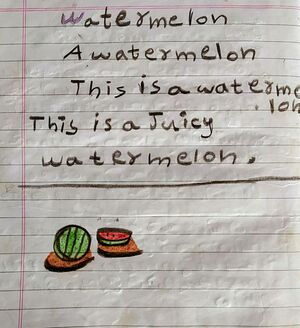 watermelon
A watermelon
This is a waterme
lon
This is a Juicy
watermelon.